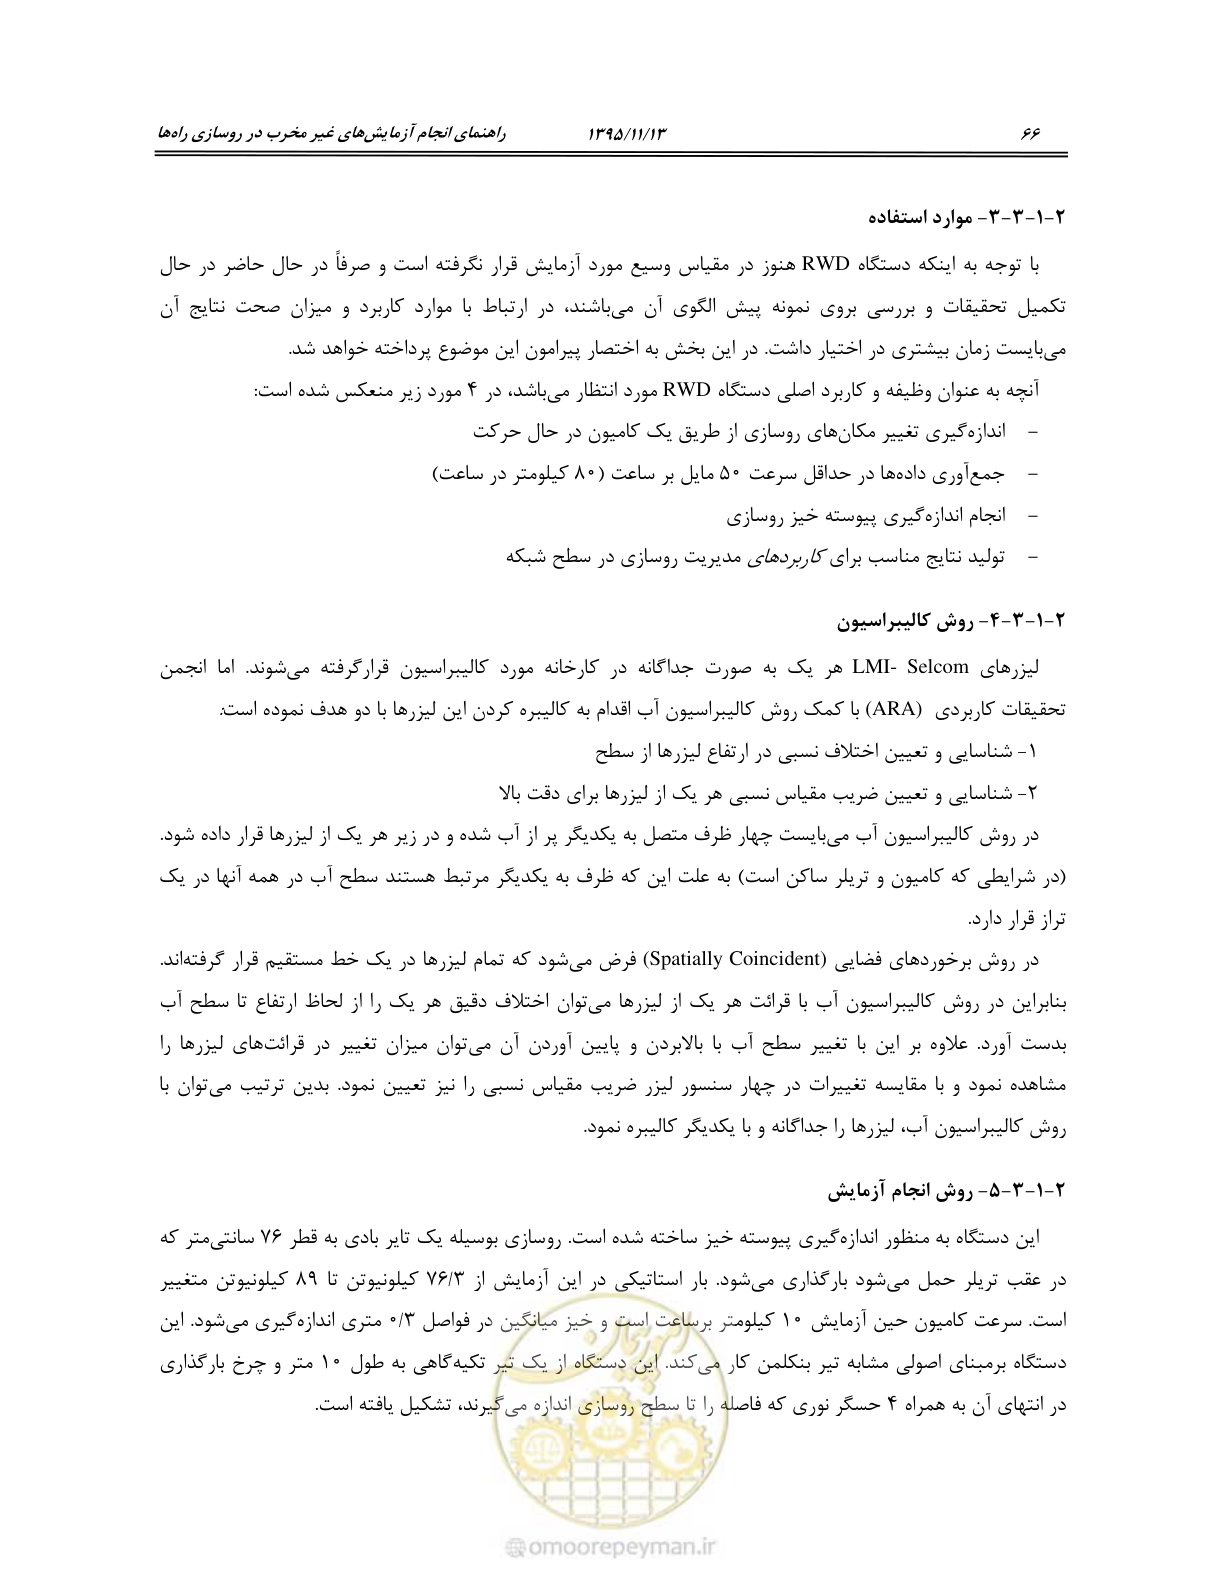 ۶۶ ۱۳۹۵/۱۱/۱۳ راهنمای انجام آزمایش‌های غیر مخرب در روسازی راه‌ها
۲-۱-۳-۳- موارد استفاده
با توجه به اینکه دستگاه RWD هنوز در مقیاس وسیع مورد آزمایش قرار نگرفته است و صرفاً در حال حاضر در حال
تکمیل تحقیقات و بررسی بروی نمونه پیش الگوی آن می‌باشند، در ارتباط با موارد کاربرد و میزان صحت نتایج آن
می‌بایست زمان بیشتری در اختیار داشت. در این بخش به اختصار پیرامون این موضوع پرداخته خواهد شد.
آنچه به عنوان وظیفه و کاربرد اصلی دستگاه RWD مورد انتظار می‌باشد، در ۴ مورد زیر منعکس شده است:
– اندازه‌گیری تغییر مکان‌های روسازی از طریق یک کامیون در حال حرکت
– جمع‌آوری داده‌ها در حداقل سرعت ۵۰ مایل بر ساعت (۸۰ کیلومتر در ساعت)
– انجام اندازه‌گیری پیوسته خیز روسازی
– تولید نتایج مناسب برای کاربردهای مدیریت روسازی در سطح شبکه
۲-۱-۳-۴- روش کالیبراسیون
لیزرهای LMI- Selcom هر یک به صورت جداگانه در کارخانه مورد کالیبراسیون قرارگرفته می‌شوند. اما انجمن
تحقیقات کاربردی (ARA) با کمک روش کالیبراسیون آب اقدام به کالیبره کردن این لیزرها با دو هدف نموده است:
۱- شناسایی و تعیین اختلاف نسبی در ارتفاع لیزرها از سطح
۲- شناسایی و تعیین ضریب مقیاس نسبی هر یک از لیزرها برای دقت بالا
در روش کالیبراسیون آب می‌بایست چهار ظرف متصل به یکدیگر پر از آب شده و در زیر هر یک از لیزرها قرار داده شود.
(در شرایطی که کامیون و تریلر ساکن است) به علت این که ظرف به یکدیگر مرتبط هستند سطح آب در همه آنها در یک
تراز قرار دارد.
در روش برخوردهای فضایی (Spatially Coincident) فرض می‌شود که تمام لیزرها در یک خط مستقیم قرار گرفته‌اند.
بنابراین در روش کالیبراسیون آب با قرائت هر یک از لیزرها می‌توان اختلاف دقیق هر یک را از لحاظ ارتفاع تا سطح آب
بدست آورد. علاوه بر این با تغییر سطح آب با بالابردن و پایین آوردن آن می‌توان میزان تغییر در قرائت‌های لیزرها را
مشاهده نمود و با مقایسه تغییرات در چهار سنسور لیزر ضریب مقیاس نسبی را نیز تعیین نمود. بدین ترتیب می‌توان با
روش کالیبراسیون آب، لیزرها را جداگانه و با یکدیگر کالیبره نمود.
۲-۱-۳-۵- روش انجام آزمایش
این دستگاه به منظور اندازه‌گیری پیوسته خیز ساخته شده است. روسازی بوسیله یک تایر بادی به قطر ۷۶ سانتی‌متر که
در عقب تریلر حمل می‌شود بارگذاری می‌شود. بار استاتیکی در این آزمایش از ۷۶/۳ کیلونیوتن تا ۸۹ کیلونیوتن متغییر
است. سرعت کامیون حین آزمایش ۱۰ کیلومتر برساعت است و خیز میانگین در فواصل ۰/۳ متری اندازه‌گیری می‌شود. این
دستگاه برمبنای اصولی مشابه تیر بنکلمن کار می‌کند. این دستگاه از یک تیر تکیه‌گاهی به طول ۱۰ متر و چرخ بارگذاری
در انتهای آن به همراه ۴ حسگر نوری که فاصله را تا سطح روسازی اندازه می‌گیرند، تشکیل یافته است.
امور پیمان
@omoorepeyman.ir